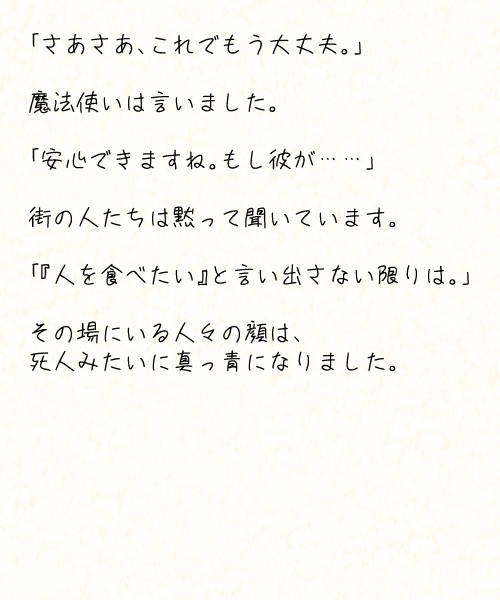 「さあさあ、これでもう大丈夫。」
魔法使いは言いました。
「安心できますね。もし彼が……」
街の人たちは黙って聞いています。
「『人を食べたい』と言い出さない限りは。」
その場にいる人々の顔は、
死人みたいに真っ青になりました。